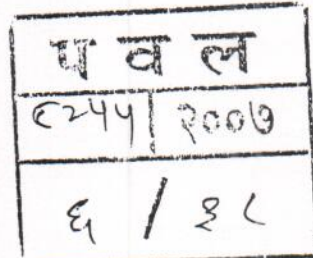 प व ल
८२५५ | २००७
६ / ३८